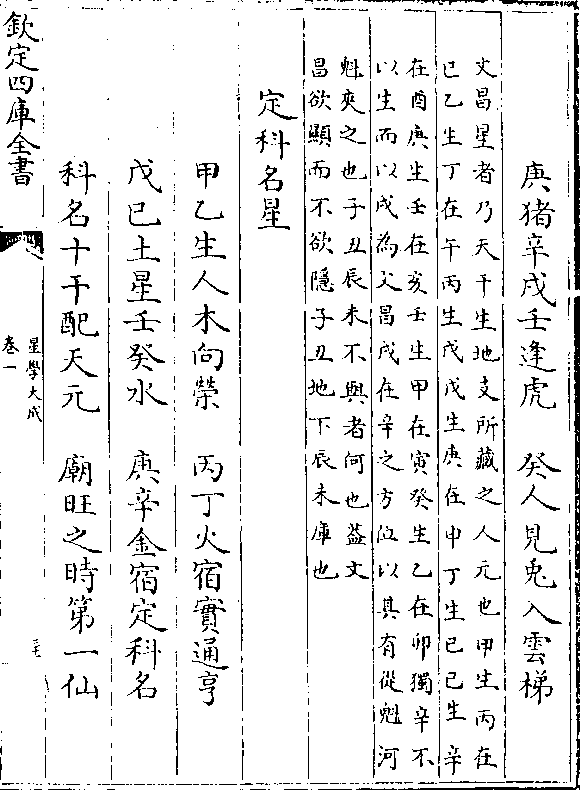 庚猪辛戌壬逢虎　癸人見兎入雲梯
文昌星者乃天干生地支所藏之人元也甲生丙在
巳乙生丁在午丙生戊戊生庚在申丁生己己生辛
在酉庚生壬在亥壬生甲在寅癸生乙在卯獨辛不
以生而以戌為文昌戌在辛之方位以其有從魁河
魁夾之也子丑辰未不與者何也葢文
昌欲顯而不欲隱子丑地下辰未庫也
定科名星
甲乙生人木向榮　丙丁火宿實通亨
戊己土星壬癸水　庚辛金宿定科名
科名十干配天元　廟旺之時第一仙
欽定四庫全書
星學大成
卷一